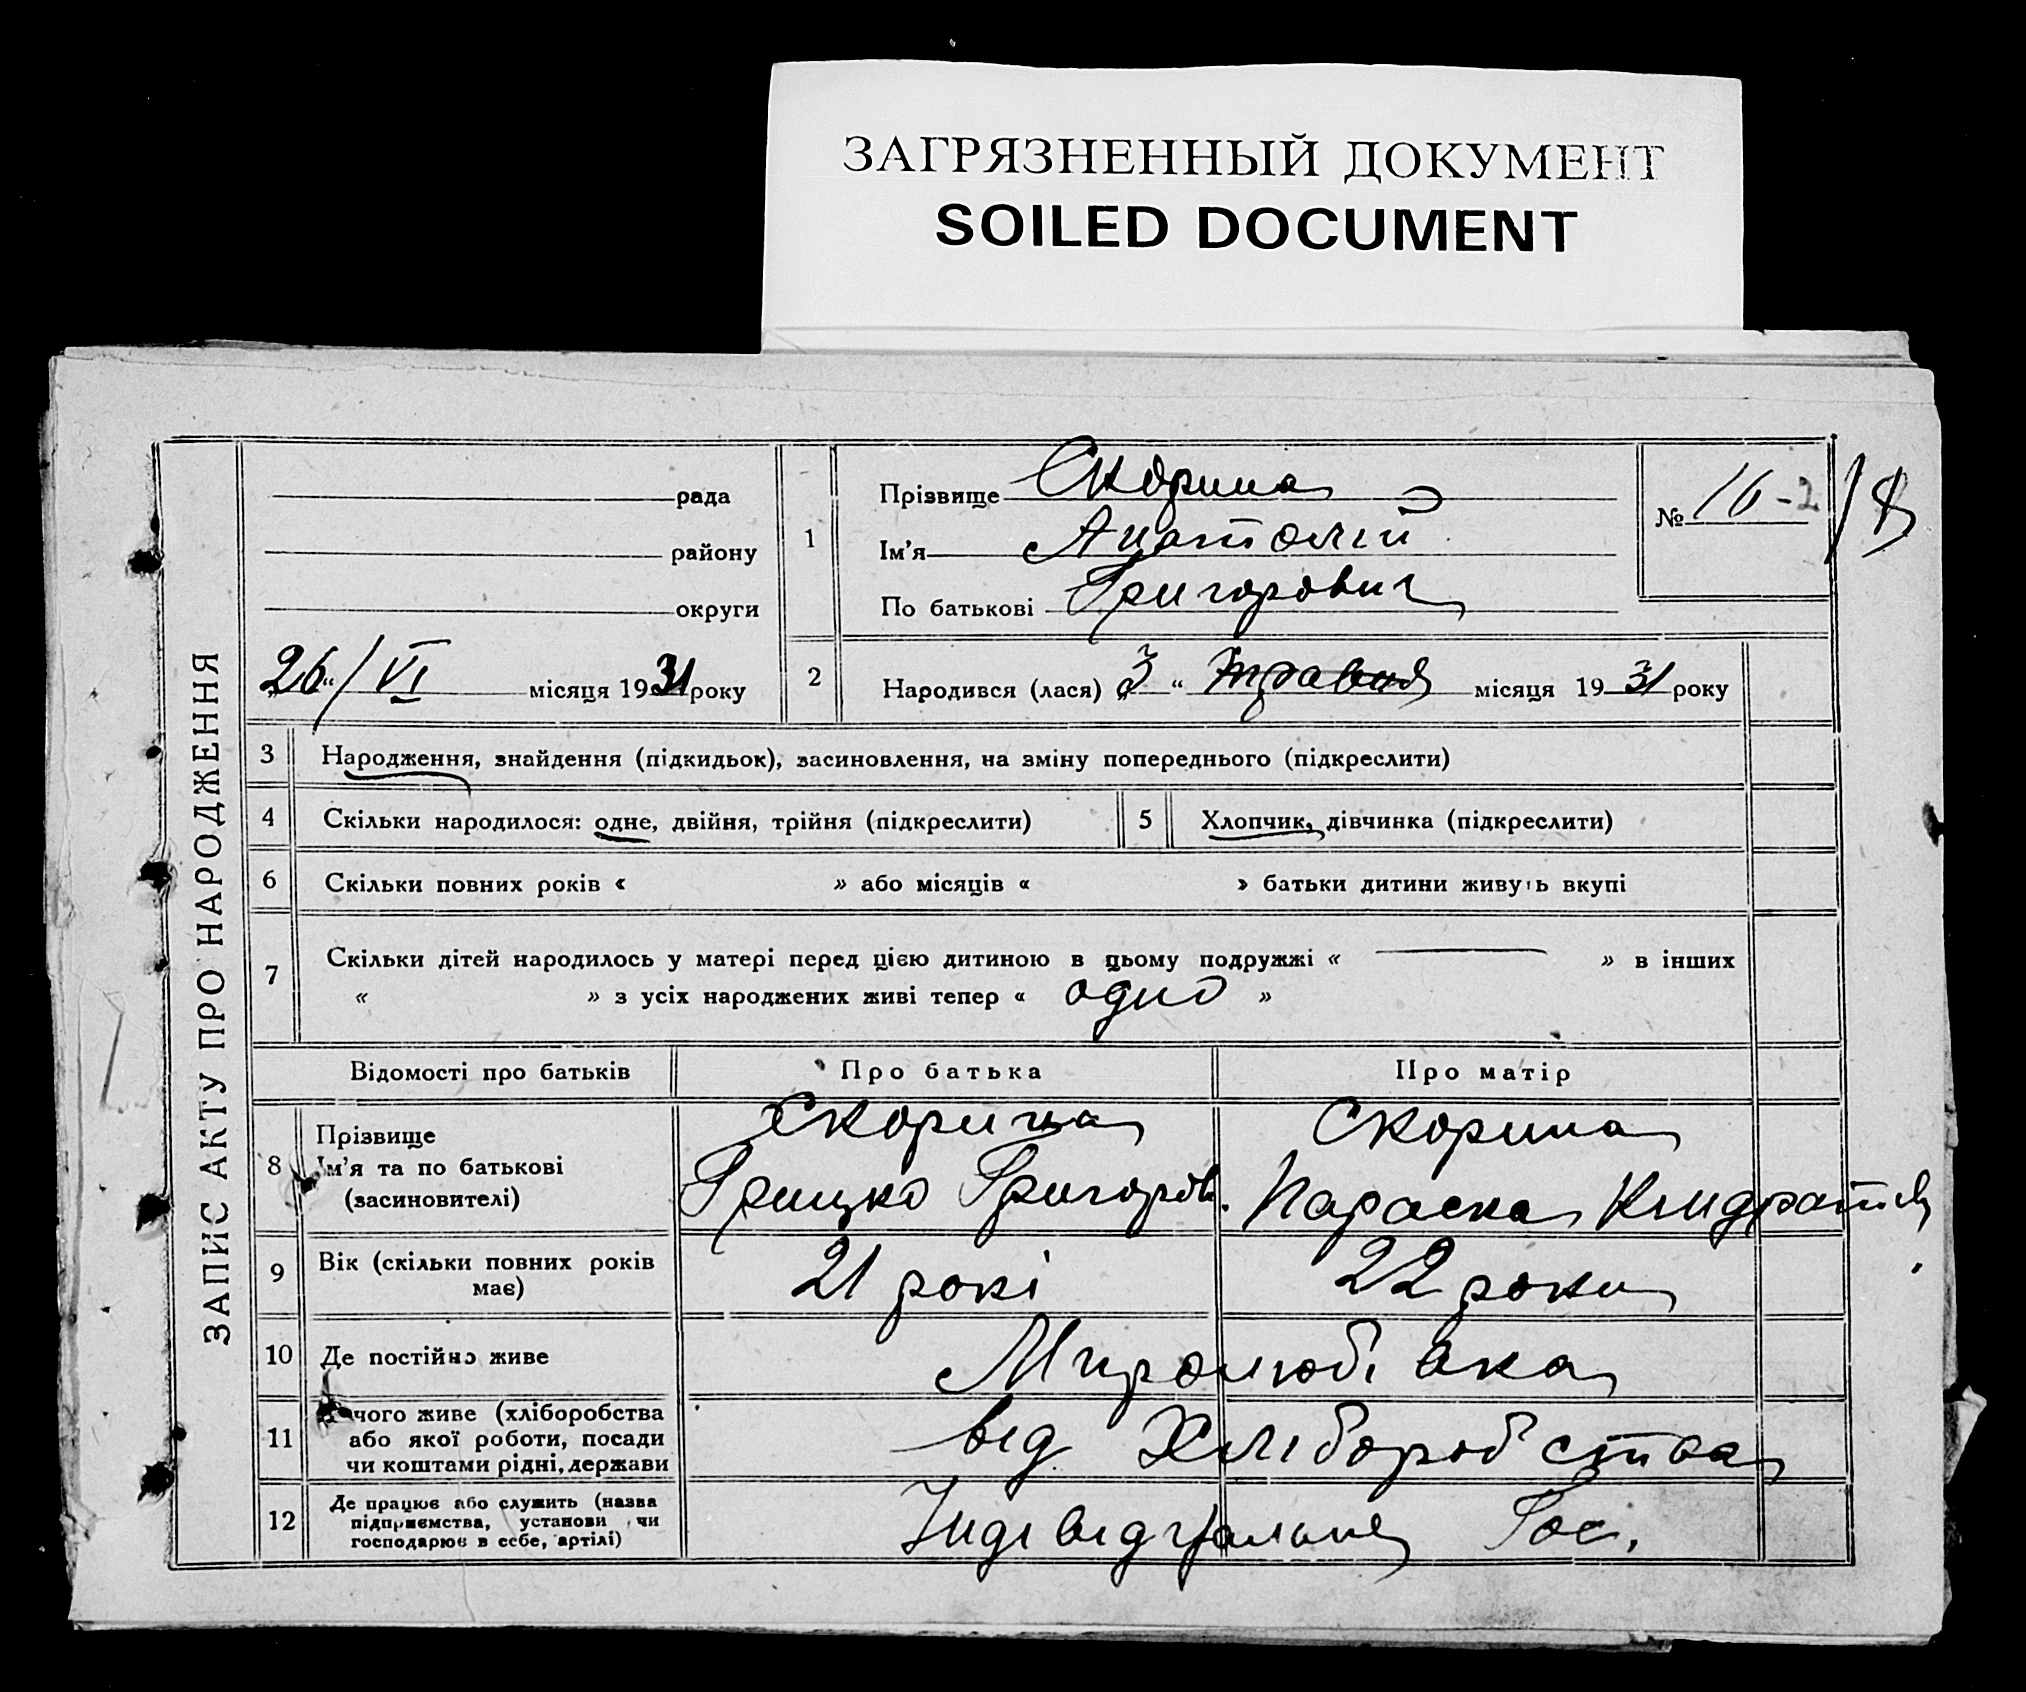 ЗАГРЯЗНЕННЫЙ ДОКУМЕНТ
SOILED DOCUMENT
ЗАПИС АКТУ ПРО НАРОДЖЕННЯ
рада
району
округи
„26“/VI місяця 1931 року
1
Прізвище Скорина
Ім'я Анатолій
По батькові Григорович
№ 16-2
2 Народився (лася) „3“ травня місяця 1931 року
3 Народження, знайдення (підкидьок), засиновлення, на зміну попереднього (підкреслити)
4 Скільки народилося: одне, двійня, трійня (підкреслити) 5 Хлопчик, дівчинка (підкреслити)
6 Скільки повних років « » або місяців « » батьки дитини живуть вкупі
7 Скільки дітей народилось у матері перед цією дитиною в цьому подружжі « — » в інших
« » з усіх народжених живі тепер « одно »
Відомості про батьків Про батька Про матір
8 Прізвище Скорина Скорина
Ім'я та по батькові Грицко Григоров. Параска Кындратів
(засиновителі)
9 Вік (скільки повних років має) 21 рокі 22 роки
10 Де постійно живе Миролюбівка
11 З чого живе (хліборобства
або якої роботи, посади від Хліборобства
чи коштами рідні, держави
12 Де працює або служить (назва
підприємства, установи чи Індівідуальне Гос.
господарює в себе, артілі)